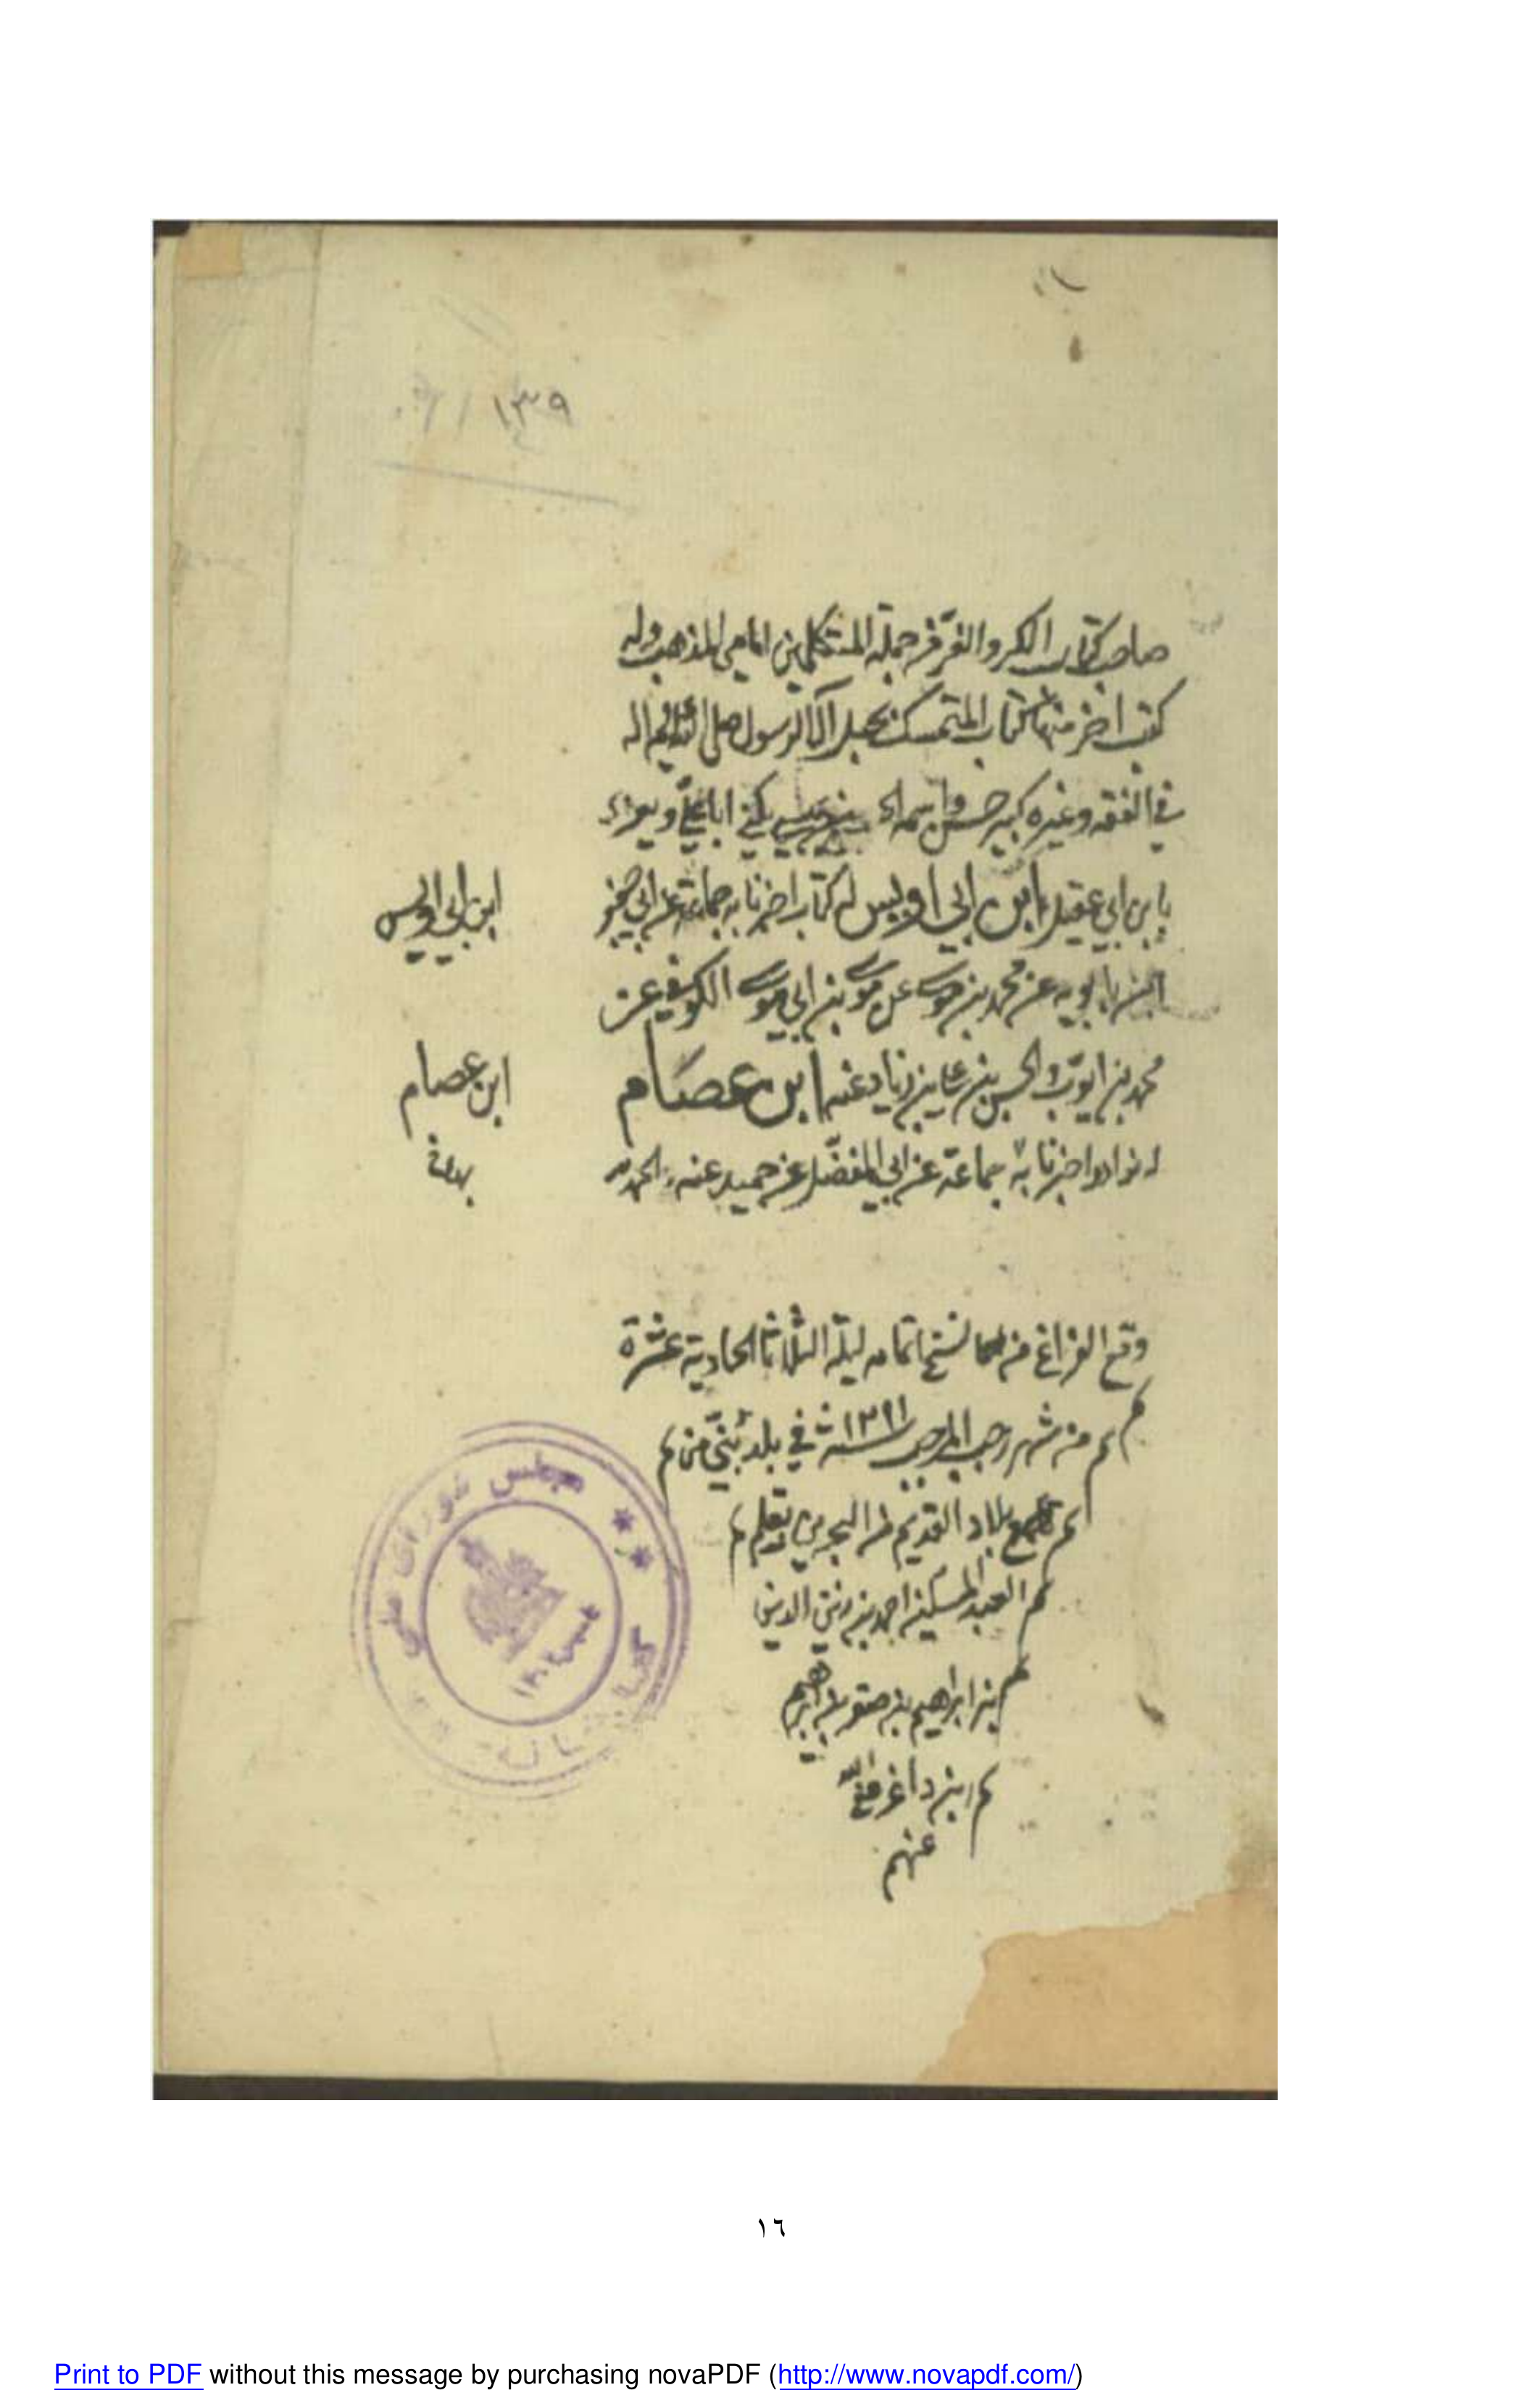 ١٣٩
صاحب كتاب الكر والفر من جملة المتكلمين امامي المذهب وله
كتب اخر منها كتاب المتمسك بحبل آل الرسول صلى الله عليه واله
في الفقه وغيره كبير حسن واسمه يكنى ابا علي ويعرف
بابن ابي عقيل ابن ابي اويس له كتاب اخبرنا به جماعة عن ابي جعفر
ابن ابي اويس
ابن بابويه عن محمد بن موسى عن موسى بن ابي موسى الكوفي عن
محمد بن ايوب والحسن بن علي بن زياد عنه ابن عصام
ابن عصام
له نوادر اخبرنا به جماعة عن ابي المفضل عن حميد عنه الحمد لله
وقع الفراغ من نسخها تمامه ليلة الثلاثا الحادية عشرة
من شهر رجب المرجب سنة في بلد من
بلاد القديم من البحرين بقلم
العبد المسكين احمد بن زين الدين
بن ابراهيم بن صقر بن ابراهيم
بن داغر
عنهم
مجلس شورای ملی
كتابخانه
١٣٠٢
١٦
Print to PDF without this message by purchasing novaPDF (http://www.novapdf.com/)